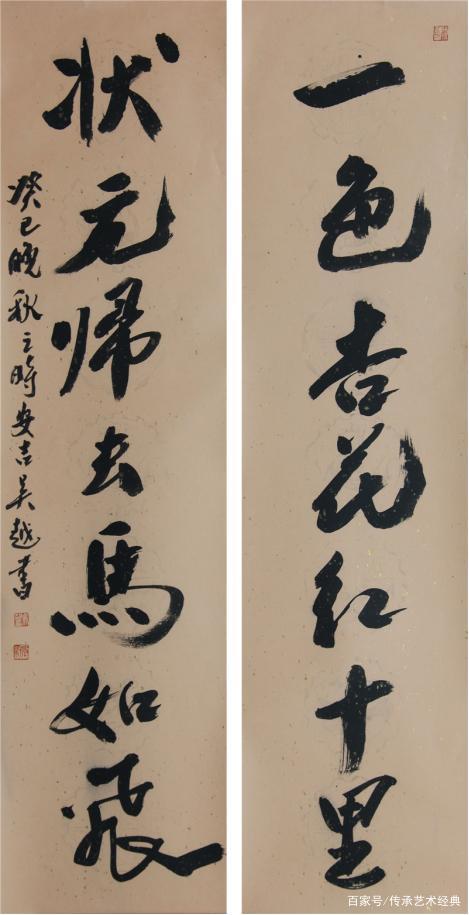 一色杏花红十里
状元帰去馬如飛
癸巳晚秋之時安吉吴越書
百家号/传承艺术经典